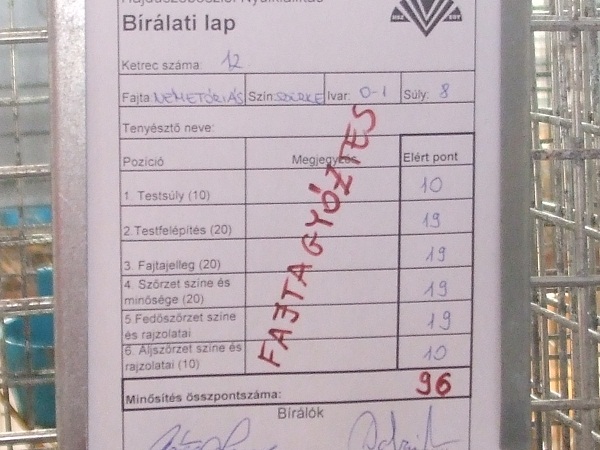 Hajdúszoboszlói Nyúlkiállítás
Bírálati lap
Ketrec száma: 12
Fajta: NÉMETÓRIÁS Szín: SZÜRKE Ivar: 0-1 Súly: 8
Tenyésztő neve:
Pozíció Megjegyzés Elért pont
1. Testsúly (10) 10
2.Testfelépítés (20) 19
3. Fajtajelleg (20) 19
4. Szőrzet színe és
minősége (20) 19
5.Fedőszőrzet színe
és rajzolatai 19
6. Aljszőrzet színe és
rajzolatai (10) 10
FAJTAGYŐZTES
Minősítés összpontszáma: 96
Bírálók